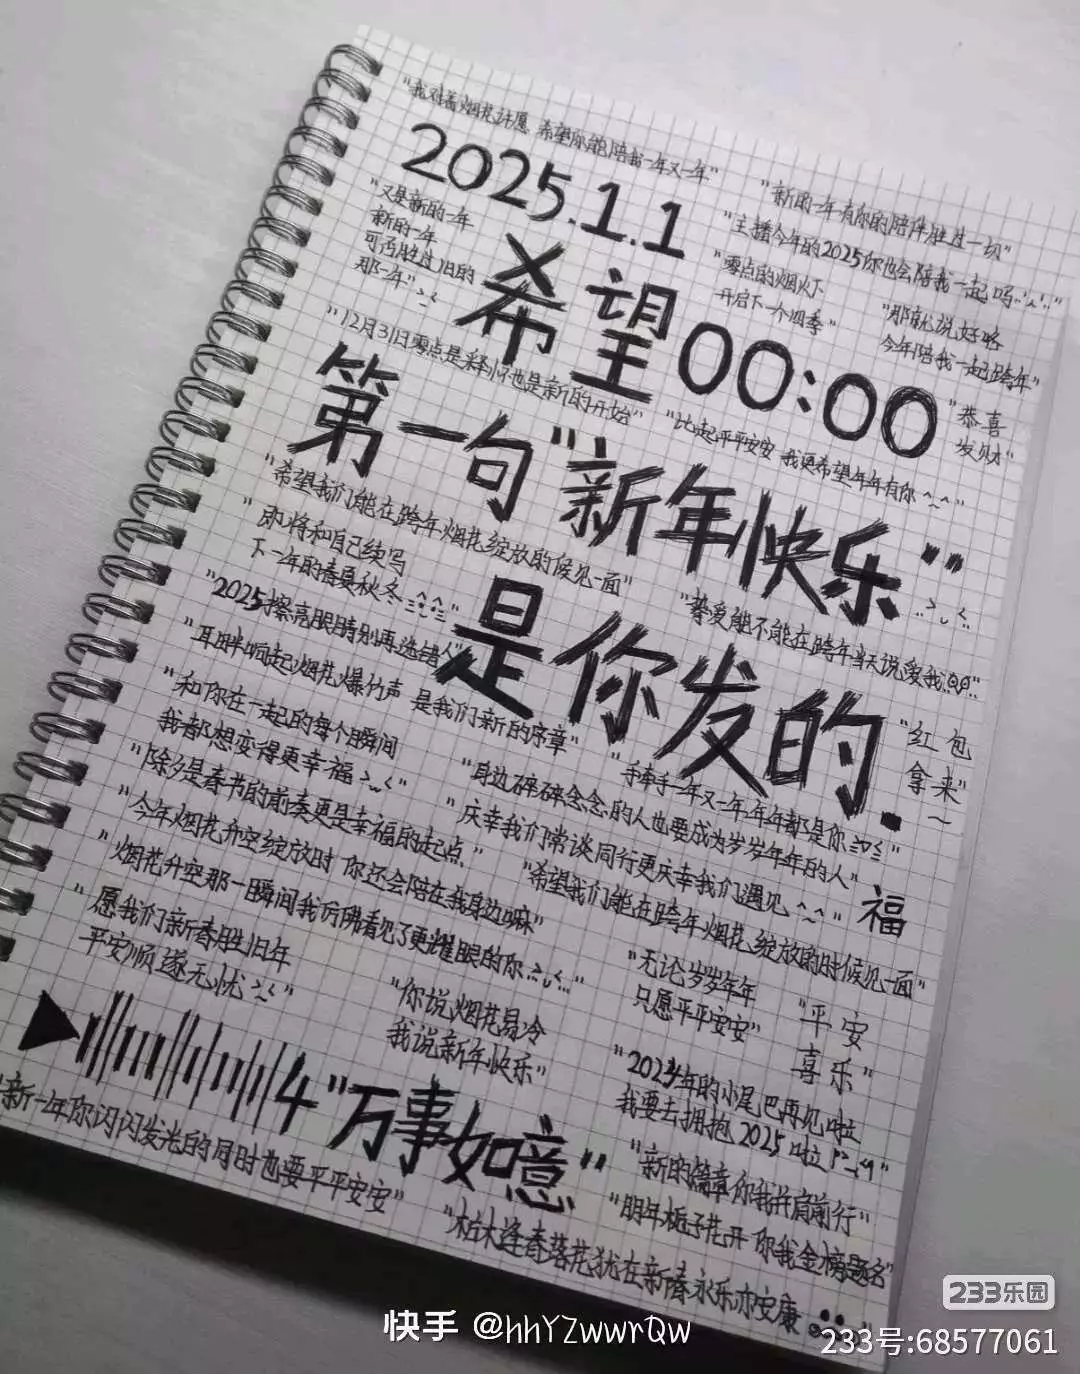 "我对着烟花许愿 希望你能陪我一年又一年"
2025.1.1
"新的一年有你的陪伴胜过一切"
"又是新的一年
新的一年
可否胜过旧的
那一年"
"主播今年的2025你也会陪我一起吗
"零点的烟火
开启下一个四季"
"那就说好咯
今年陪我一起跨年"
希望00:00
"12月31日零点是释怀也是新的开始"
"比起平平安安 我更希望年年有你^_^"
"恭喜
发财"
第一句"新年快乐"
"希望我们能在跨年烟花绽放的候见一面"
"即将和自己续写
下一年的春夏秋冬
"挚爱能不能在跨年当天说爱我
是你发的.
"2025擦亮眼睛别再选错人"
"耳畔响起烟花爆竹声 是我们新的序章"
"和你在一起的每个瞬间
我都想变得更幸福
"红包
拿来"
~
"手牵手一年又一年年年都是你
"身边碎碎念念的人也要成为岁岁年年的人"
"除夕是春节的前奏更是幸福的起点"
"庆幸我们常谈同行更庆幸我们遇见^_^"
福
"今年烟花升空绽放时 你还会陪在我身边嘛"
"希望我们能在跨年烟花绽放的时候见一面"
"烟花升空那一瞬间我仿佛看见了更耀眼的你
"愿我们新春胜旧年
平安顺遂无忧
"无论岁岁年年
只愿平平安安"
"平安
喜乐"
"你说烟花易冷
我说新年快乐"
"2024年的小尾巴再见啦
我要去拥抱2025啦
4"万事如意"
"新的篇章你我并肩前行"
"新一年你闪闪发光的同时也要平平安安"
"明年栀子花开 你我金榜题名"
"枯木逢春落花犹在新春永乐亦安康
快手 @hhYZwwrQw
233乐园
233号:68577061